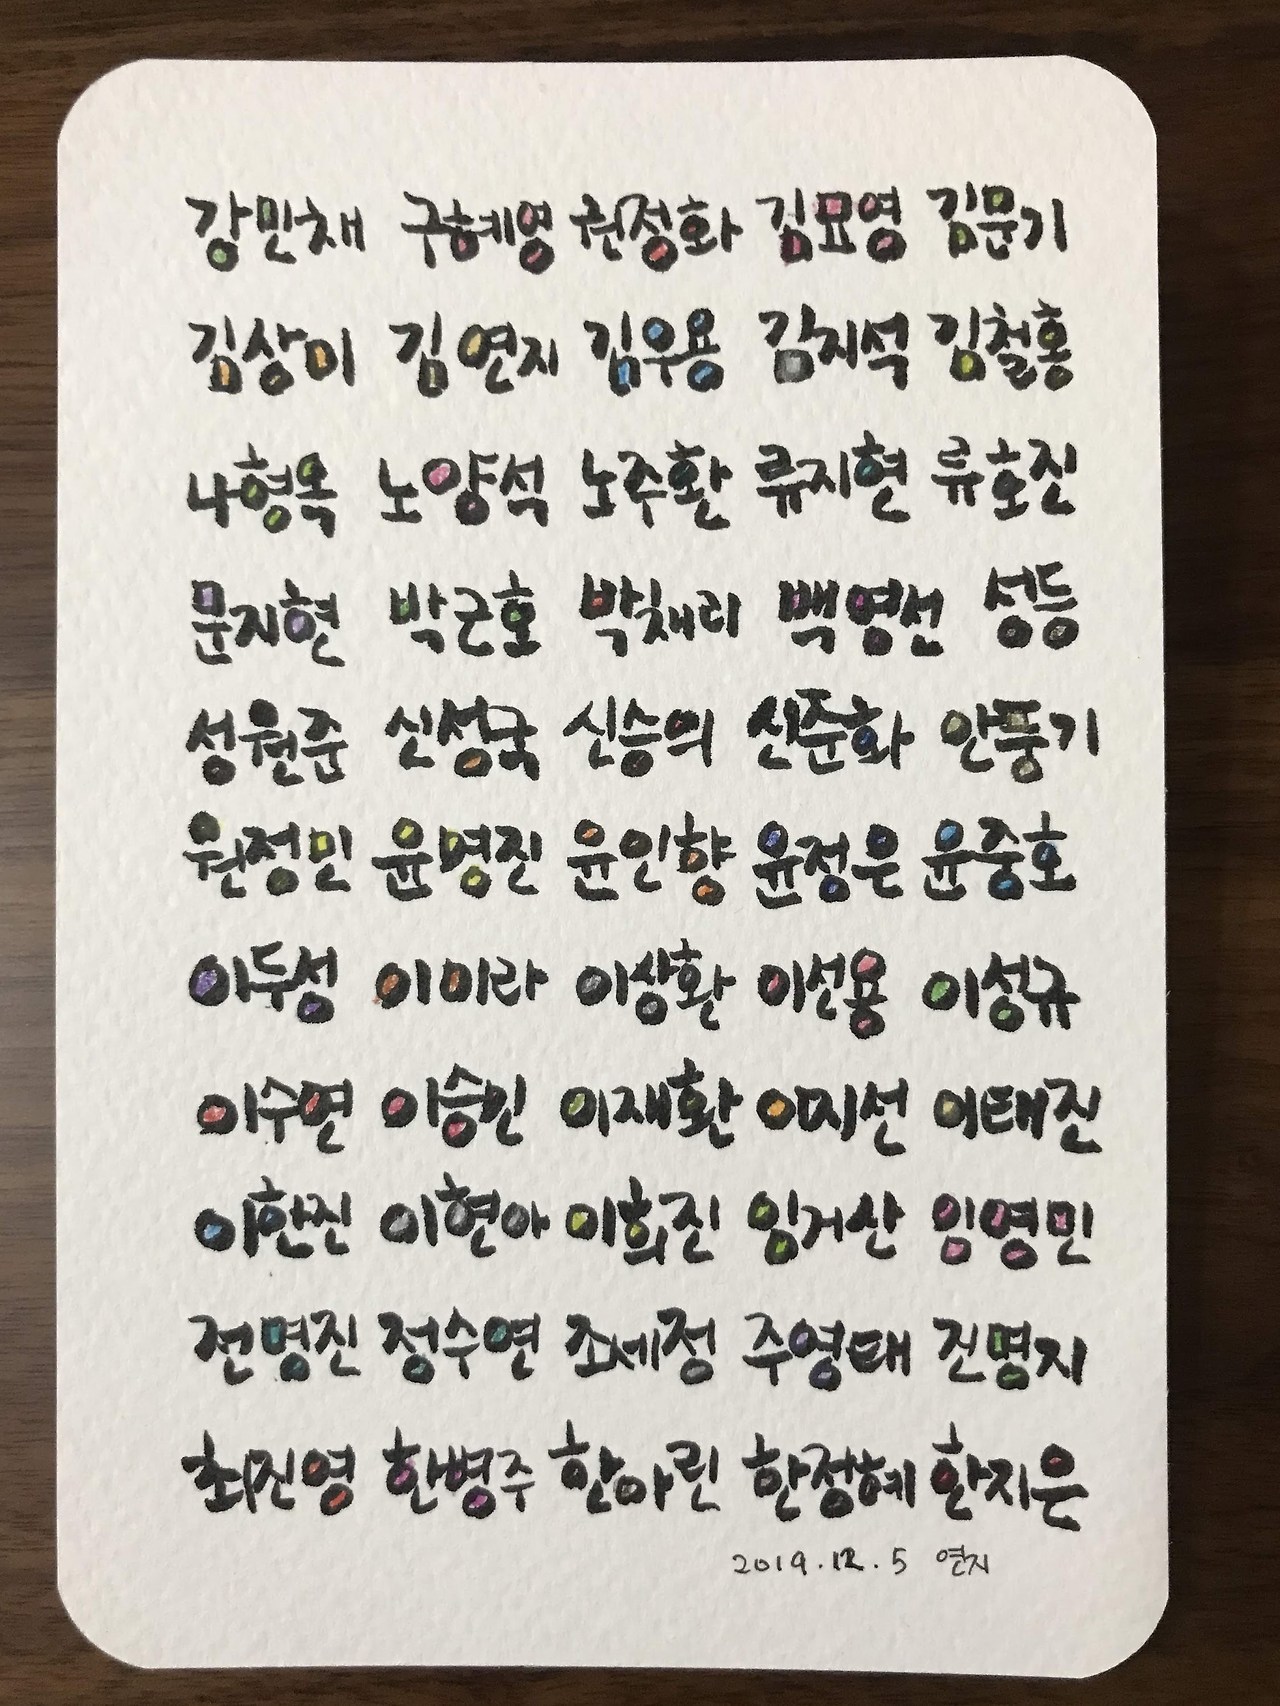 강민채 구혜영 권정화 김묘영 김문기
김상미 김연지 김우용 김지석 김철홍
나형옥 노양석 노주환 류지현 류호진
문지현 박근호 박채리 백영선 성등
성원준 신성국 신승의 신준화 안풍기
원정민 윤명진 윤인향 윤정은 윤중호
이두성 이미라 이상환 이선용 이성규
이수연 이승민 이재환 이지선 이태진
이한진 이현아 이희진 임거산 임영민
전명진 정수연 조세정 주영태 진명지
최진영 한병주 한아린 한정혜 한지은
2019.12.5 연지